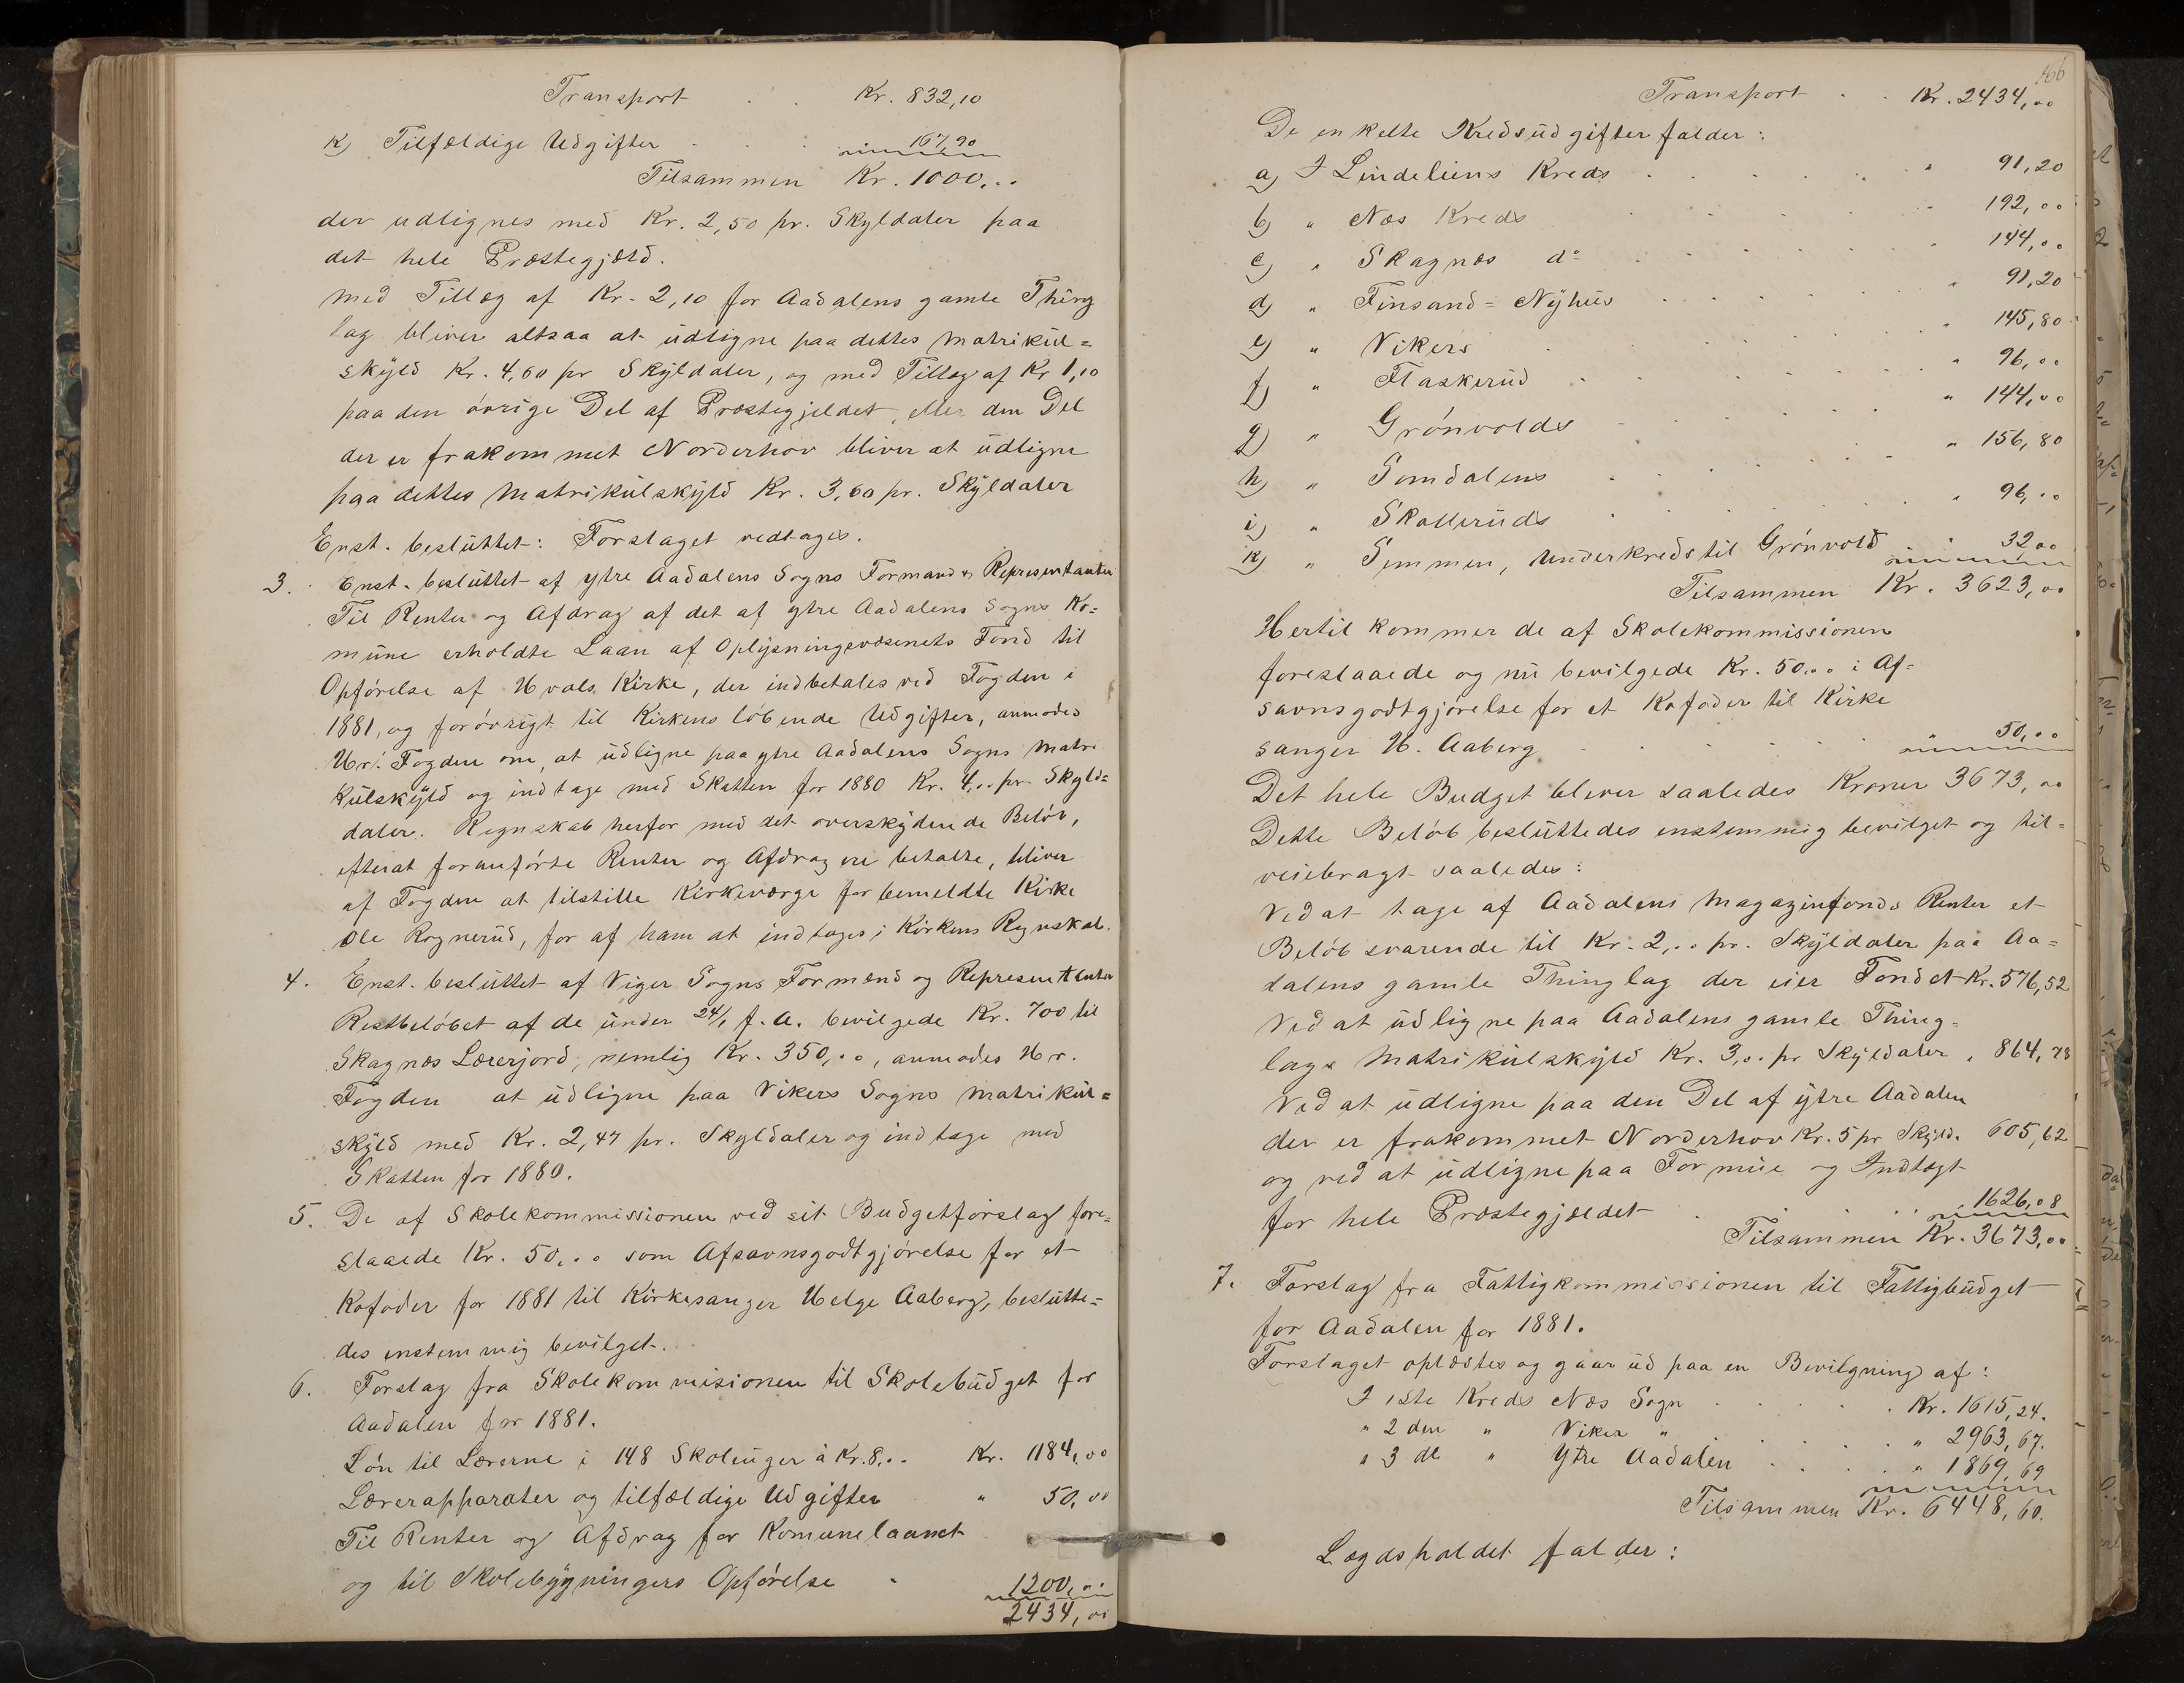 Transport . . Kr. 832,10
k) Tilfældige Udgifter . . . 167,90
Tilsammen Kr. 1000,..
der udlignes med Kr. 2,50 pr. Skyldaler paa
det hele Præstegjæld.
Med Tillæg af Kr. 2,10 for Aadalens gamle Thing
lag bliver altsaa at udligne paa dettes Matrikul=
skyld Kr. 4,60 pr Skyldaler, og med Tillæg af Kr 1,10
paa den øvrige Del af Præstegjeldet, eller den Del
der er frakommet Norderhov bliver at udligne
paa dettes Matrikulskyld Kr. 3,60 pr. Skyldaler
Enst. besluttet: Forslaget vedtages.
3. Enst. besluttet af ytre Aadalens Sogns Formænd & Representanter
Til Renter og Afdrag af det af ytre Aadalens Sogns Ko=
mune erholdte Laan af Oplysningsvæsenets Fond til
Opførelse af Hvals Kirke, der indbetales ved Fogden i
1881, og forøvrigt til Kirkens løbende Udgifter, anmodes
Hr. Fogden om, at udligne paa ytre Aadalens Sogns Matri
kulskyld og indtage med Skatten for 1880 Kr. 4,.. pr. Skyld=
daler. Regnskab herfor med det overskydende Beløb,
efterat foranførte Renter og Afdrag ere betalte, bliver
af Fogden at tilstille Kirkeværge for bemeldte Kirke
Ole Rognerud, for af ham at indtages i Kirkens Regnskab.
4. Enst. besluttet af Viger Sogns Formænd og Representanter
Restbeløbet af de under 24/1 f. A. bevilgede Kr. 700 til
Skagnæs Lærerjord, nemlig Kr. 350,.., anmodes Hr.
Fogden at udligne paa Vikers Sogns Matrikul=
skyld med Kr. 2,47 pr. Skyldaler og indtage med
Skatten for 1880.
5. De af Skolekommissionen ved sit Budgetforslag fore=
slaaede Kr. 50,.. som Afsavnsgodtgjørelse for et
Kofoder for 1881 til Kirkesanger Helge Aaberg, beslutte=
des enstemmig bevilget.
6. Forslag fra Skolekommisionen til Skolebudget for
Aadalen for 1881.
Løn til Lærerne i 148 Skoleuger à Kr. 8,.. Kr. 1184,00
Lærerapparater og tilfældige Udgifter " 50,00
Til Renter og Afdrag for Komunelaanet
og til Skolebygningers Opførelse " 1200,..
2434,00
166
Transport . . Kr. 2434,00
De enkelte Kredsudgifter falder:
a) I Lindeliens Kreds . . . . . " 91,20
b) " Næs Kreds . . . . . " 192,00
c) " Skagnæs do . . . . . " 144,00
d) " Finsand=Nyhus . . . . . " 91,20
e) " Vikers . . . . . " 145,80
f) " Flaskerud . . . . . " 96,00
g) " Grønvolds . . . . . " 144,00
h) " Somdalens . . . . . " 156,80
i) " Skolleruds . . . . . " 96,00
k) " Semmen, Underkreds til Grønvold . " 32 00
Tilsammen Kr. 3623,00
Hertil kommer de af Skolekommissionen
foreslaaede og nu bevilgede Kr. 50,.. i Af=
savnsgodtgjørelse for et Kofoder til Kirke
sanger H. Aaberg . . . . . " 50,00
Det hele Budget bliver saaledes Kroner 3673,00
Dette Beløb besluttedes enstemmig bevilget og til=
veiebragt saaledes:
Ved at tage af Aadalens Magazinfonds Renter et
Beløb svarende til Kr. 2,.. pr. Skyldaler paa Aa=
dalens gamle Thinglag der eier Fondet Kr. 576,52
Ved at udligne paa Aadalens gamle Thing=
lags Matrikulskyld Kr. 3,.. pr Skyldaler " 864,78
Ved at udligne paa den Del af ytre Aadalen
der er frakommet Norderhov Kr. 5 pr Skyld. 605,62
og ved at udligne paa Formue og Indtægt
for hele Præstegjældet . . . . 1626,08
Tilsammen Kr. 3673,00
7. Forslag fra Fattigkommissionen til Fattigbudget
for Aadalen for 1881.
Forslaget oplæstes og gaar ud paa en Bevilgning af:
I 1ste Kreds Næs Sogn . . . . Kr. 1615,24.
" 2den " Viker " . . . . " 2963,67.
" 3de " Ytre Aadalen . . . . " 1869,69
Tilsammen Kr. 6448,60.
Lægdsholdet falder: